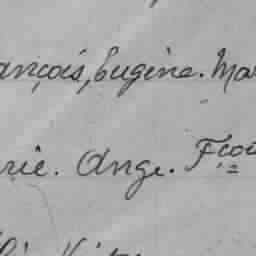 ançois, Eugène. Ma
rie. Ange. Fçoi